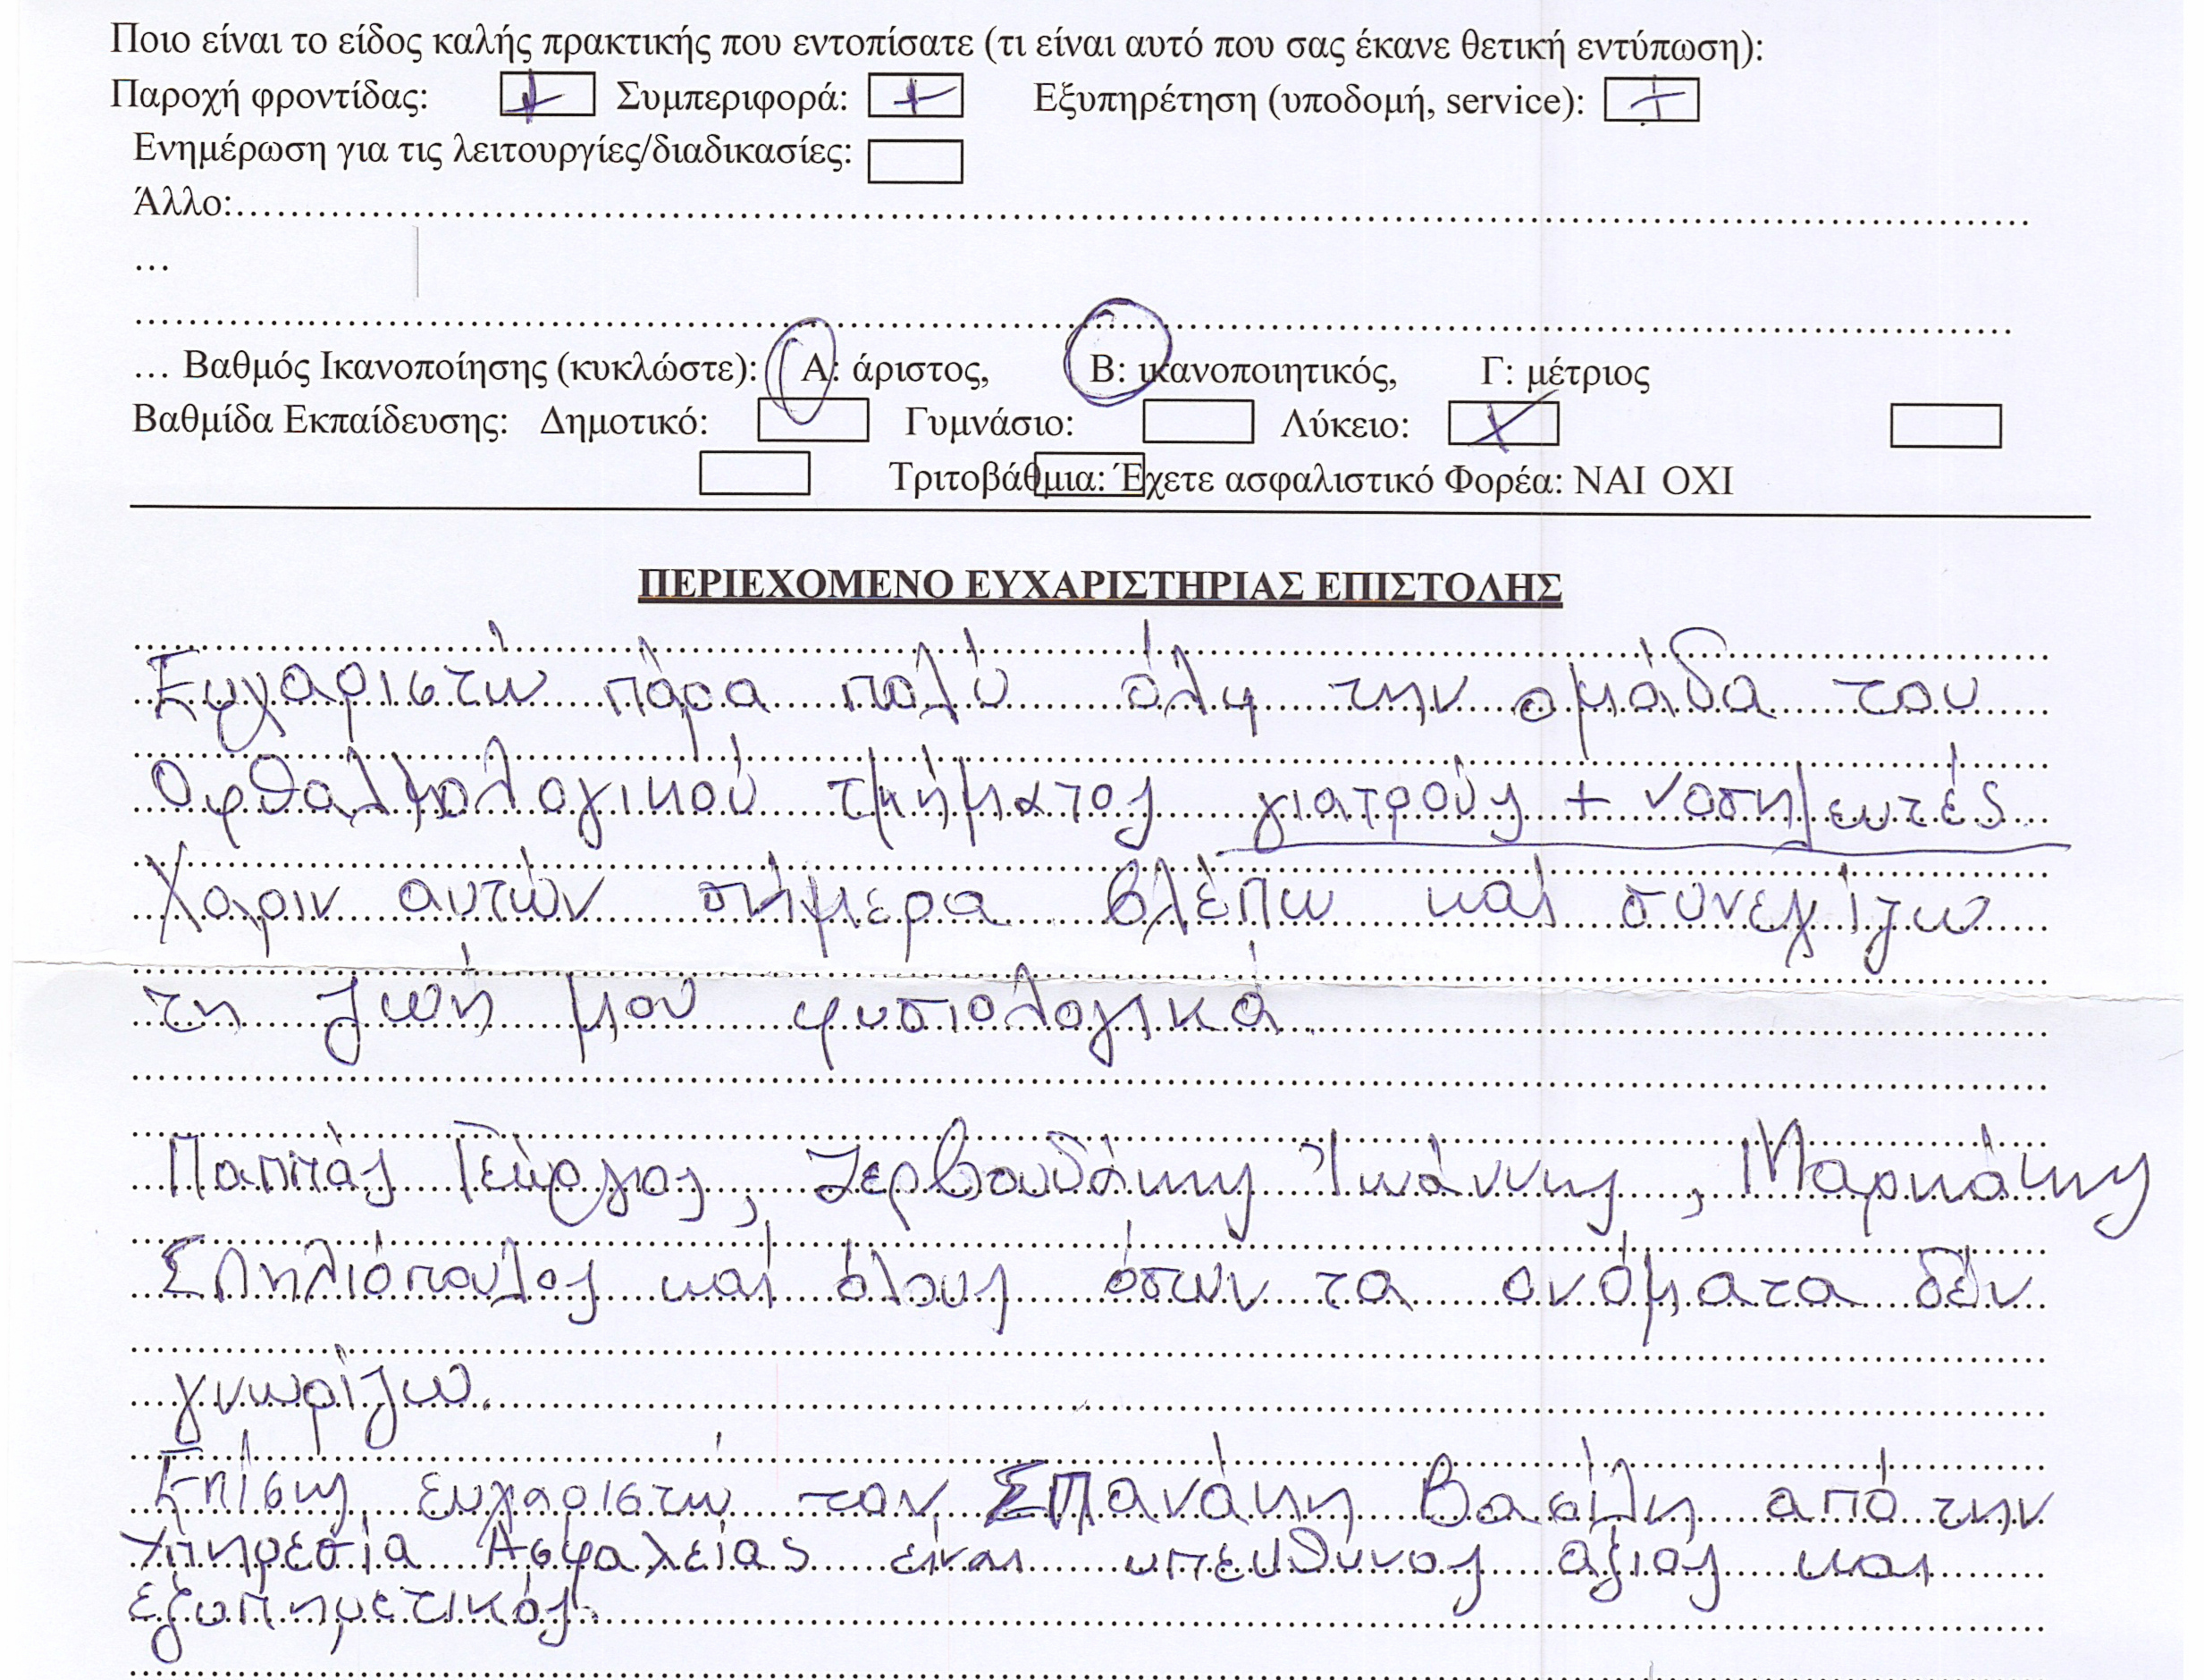 Ποιο είναι το είδος καλής πρακτικής που εντοπίσατε (τι είναι αυτό που σας έκανε θετική εντύπωση):
Παροχή φροντίδας: + Συμπεριφορά: + Εξυπηρέτηση (υποδομή, service): +
Ενημέρωση για τις λειτουργίες/διαδικασίες:
Άλλο:……………………………………………………………………………
…
……………………………………………………………………………
… Βαθμός Ικανοποίησης (κυκλώστε): Α: άριστος, Β: ικανοποιητικός, Γ: μέτριος
Βαθμίδα Εκπαίδευσης: Δημοτικό: Γυμνάσιο: Λύκειο: X
Τριτοβάθμια: Έχετε ασφαλιστικό Φορέα: ΝΑΙ ΟΧΙ
ΠΕΡΙΕΧΟΜΕΝΟ ΕΥΧΑΡΙΣΤΗΡΙΑΣ ΕΠΙΣΤΟΛΗΣ
Ευχαριστώ πάρα πολύ όλη την ομάδα του
Οφθαλμολογικού τμήματος γιατρούς + νοσηλευτές
Χάριν αυτών σήμερα βλέπω καί συνεχίζω
τη ζωή μου φυσιολογικά
Παππάς Γεώργιος, Ζερβουδάκης Ιωάννης, Μαρκάκης
Σπηλιόπουλος καί όλους όσων τα ονόματα δέν
γνωρίζω.
Επίσης ευχαριστώ τον Σπανάκη Βασίλη από την
Υπηρεσία Ασφαλείας είναι υπεύθυνος άξιος και
εξυπηρετικός.